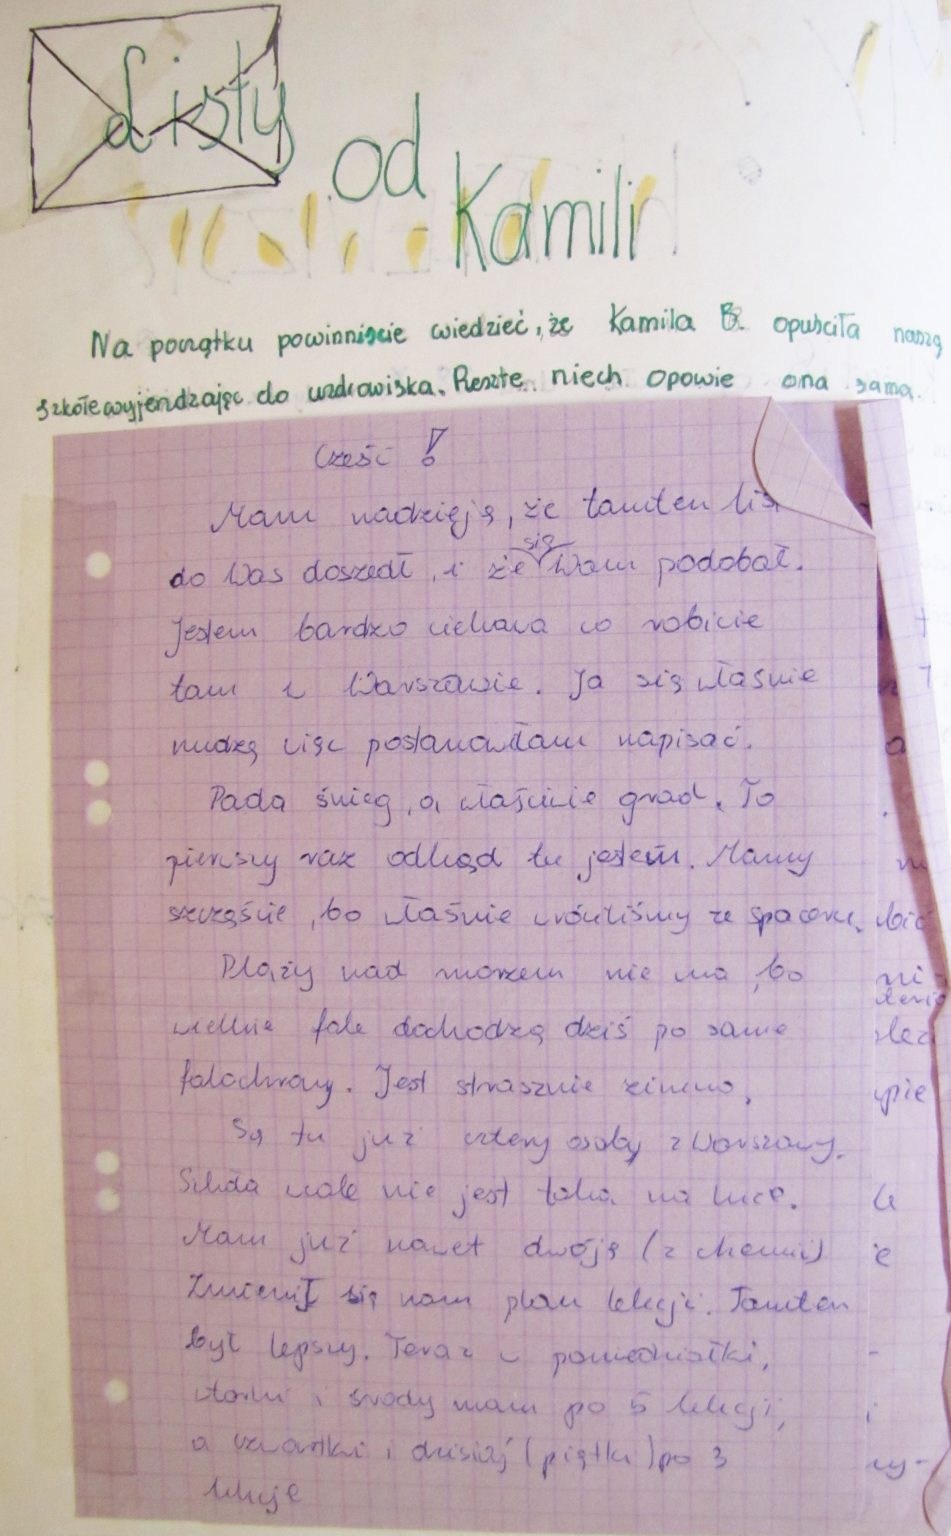 Listy
od
Kamili
Na początku powinniście wiedzieć, że Kamila B. opuściła naszą
szkołę wyjendzając do uzdrowiska. Resztę niech opowie ona sama.
Cześć!
Mam nadzieję, że tamten list
do Was doszedł, i że się Wam podobał.
Jestem bardzo ciekawa co robicie
tam w Warszawie. Ja się właśnie
nudzę więc postanowiłam napisać.
Pada śnieg, a właściwie grad. To
pierwszy raz odkąd tu jestem. Mamy
szczęście, bo właśnie wróciliśmy ze spaceru.
Plaży nad morzem nie ma, bo
wielkie fale dochodzą dziś po same
falochrony. Jest strasznie zimno.
Są tu już cztery osoby z Warszawy.
Szkoła wcale nie jest taka na luce.
Mam już nawet dwóję (z chemii)
Zmienił się nam plan lekcji. Tamten
był lepszy. Teraz w poniedziałki,
wtorki i środy mam po 5 lekcji,
a czwartki i dzisiaj (piątki) po 3
lekcje